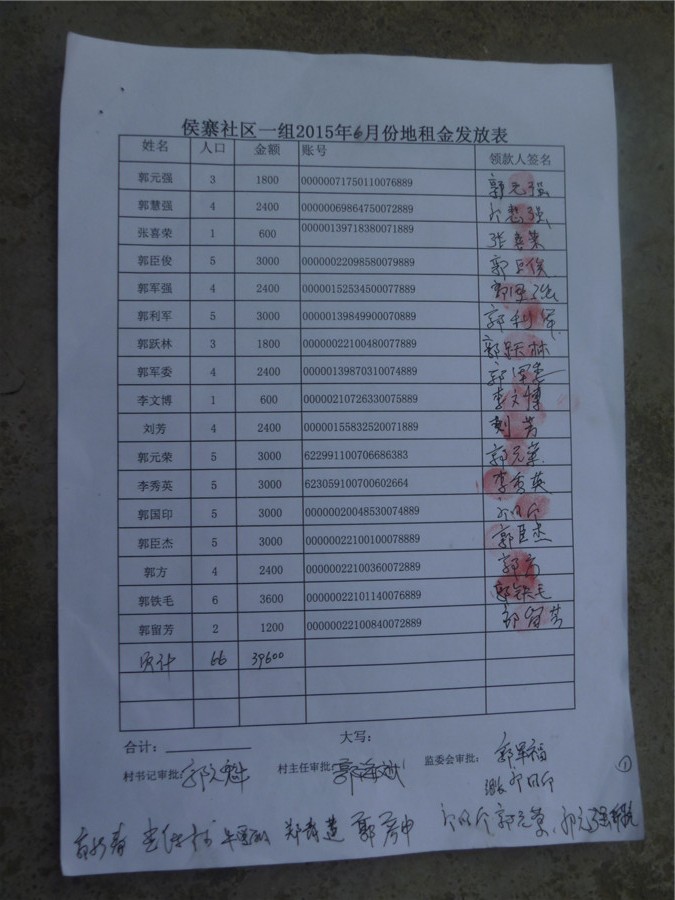 侯寨社区一组2015年6月份地租金发放表
姓名 人口 金额 账号 领款人签名
郭元强 3 1800 00000071750110076889 郭元强
郭慧强 4 2400 00000069864750072889 郭慧强
张喜荣 1 600 00000139718380071889 张喜荣
郭臣俊 5 3000 00000022098580079889 郭臣俊
郭军强 4 2400 00000152534500077889 郭军强
郭利军 5 3000 00000139849900070889 郭利军
郭跃林 3 1800 00000022100480077889 郭跃林
郭军委 4 2400 00000139870310074889 郭军委
李文博 1 600 00000210726330075889 李文博
刘芳 4 2400 00000155832520071889 刘芳
郭元荣 5 3000 622991100706686383 郭元荣
李秀英 5 3000 623059100700602664 李秀英
郭国印 5 3000 00000020048530074889
郭臣杰 5 3000 00000022100100078889 郭臣杰
郭方 4 2400 00000022100360072889 郭方
郭铁毛 6 3600 00000022101140076889 郭铁毛
郭留芳 2 1200 00000022100840072889 郭留芳
页计 66 39600
合计： 大写：
村书记审批: 郭文魁 村主任审批: 郭海斌 监委会审批: 郭军福
①
郭彦中 郭元荣 郭元强